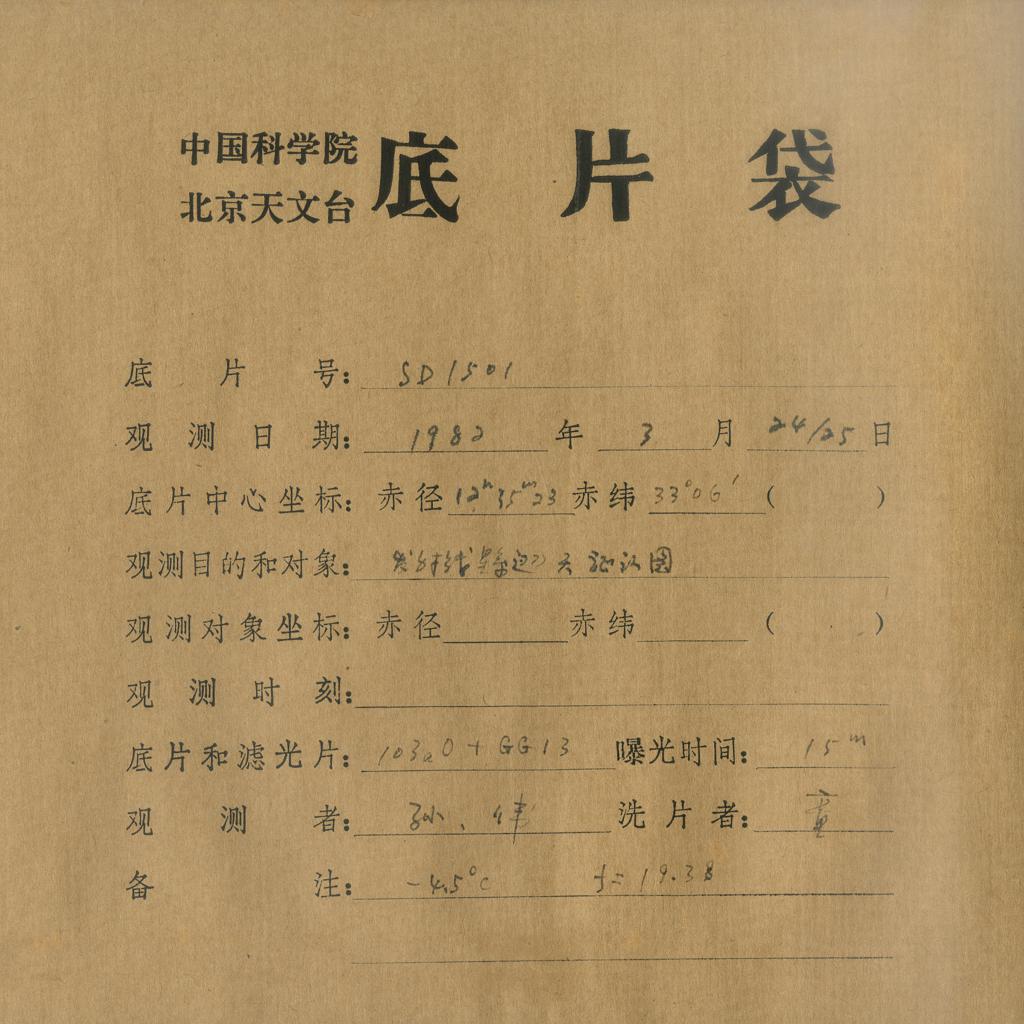 中国科学院
北京天文台
底片袋
底片号: SD1501
观测日期: 1982 年 3 月 24/25 日
底片中心坐标: 赤径 12ʰ35ᵐ23 赤纬 33°06′ ( )
观测目的和对象: 发射线 天 证认图
观测对象坐标: 赤径 赤纬 ( )
观测时刻:
底片和滤光片: 103aO+GG13 曝光时间: 15ᵐ
观测者: 孙、伟 洗片者: 童
备注: -4.5°C f=19.38